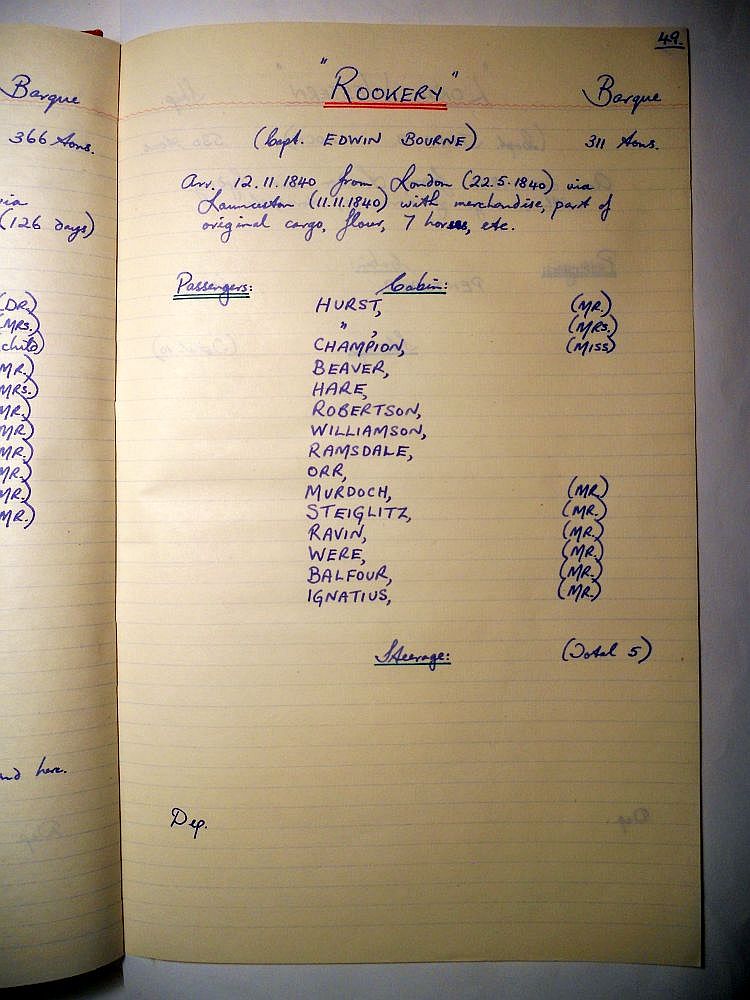 Barque
366 tons.
(126 days)
(DR.)
(MRS.)
child)
MR.)
MRS.)
MR.)
MR)
MR.)
MR.)
MR.)
MR.)
here.
49.
"ROOKERY" Barque
(Capt. EDWIN BOURNE) 311 tons.
Arr. 12.11.1840 from London (22.5.1840) via
Launceston (11.11.1840) with merchandise, part of
original cargo, flour, 7 horses, etc.
Passengers: Cabin:
HURST, (MR.)
" , (MRS.)
CHAMPION, (MISS)
BEAVER,
HARE,
ROBERTSON,
WILLIAMSON,
RAMSDALE,
ORR,
MURDOCH, (MR.)
STEIGLITZ, (MR.)
RAVIN, (MR.)
WERE, (MR.)
BALFOUR, (MR.)
IGNATIUS, (MR.)
Steerage: (Total 5)
Dep.